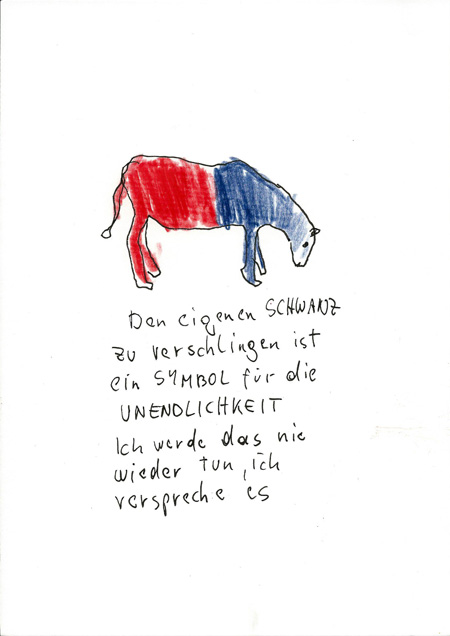 Den eigenen SCHWANZ
zu verschlingen ist
ein SYMBOL für die
UNENDLICHKEIT
Ich werde das nie
wieder tun, ich
verspreche es